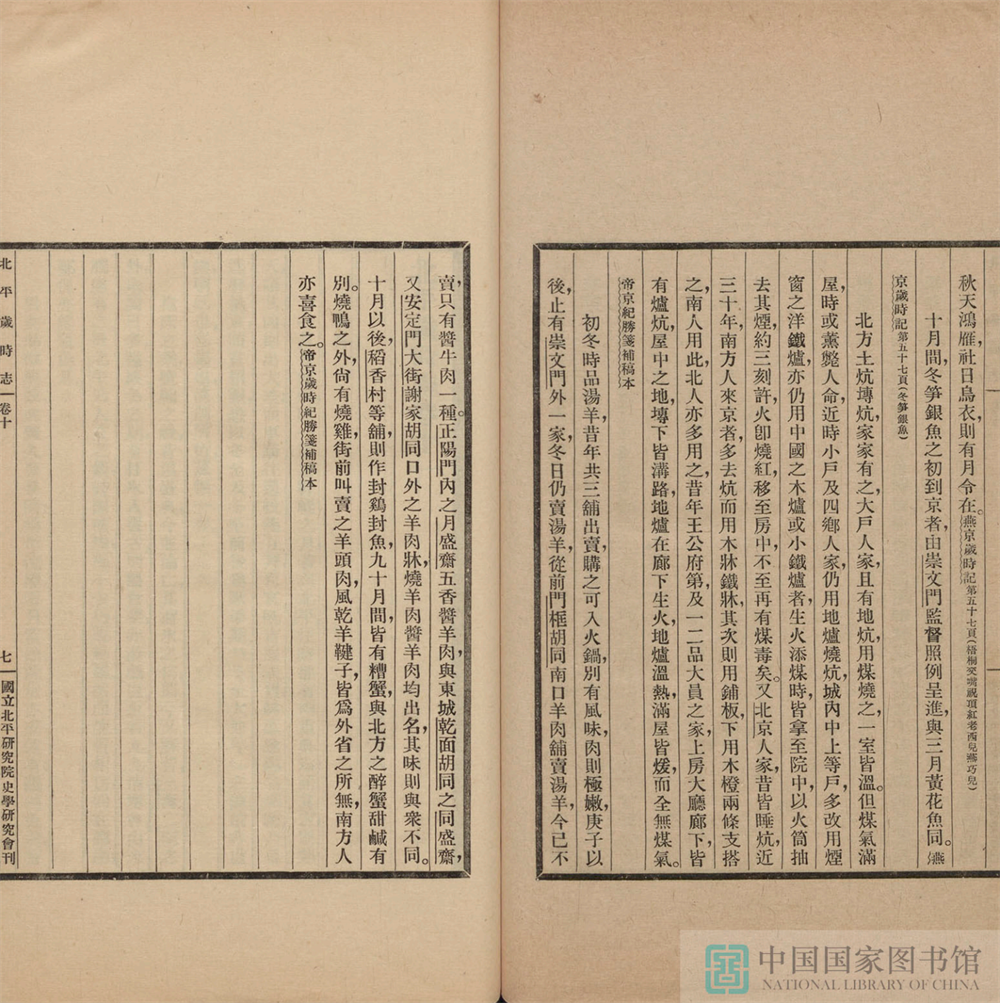 秋天鴻雁社日烏衣則有月令在。燕京歲時記第五十七頁(梧桐交嘴祝頂紅老西兒燕巧兒)
十月間冬笋銀魚之初到京者由崇文門監督照例呈進與三月黃花魚同。燕
京歲時記第五十七頁(冬笋銀魚)
北方土炕塼炕家家有之大戶人家且有地炕用煤燒之一室皆溫。但煤氣滿
屋時或薰斃人命近時小戶及四鄉人家仍用地爐燒炕城內中上等戶多改用煙
窗之洋鐵爐亦仍用中國之木爐或小鐵爐者生火添煤時皆拿至院中以火筒抽
去其煙約三刻許火卽燒紅移至房中不至再有煤毒矣。又北京人家昔皆睡炕近
三十年南方人來京者多去炕而用木牀鐵牀其次則用鋪板下用木櫈兩條支搭
之南人用此北人亦多用之昔年王公府第及一二品大員之家上房大廳廊下皆
有爐炕屋中之地塼下皆溝路地爐在廊下生火地爐溫熱滿屋皆煖而全無煤氣。
帝京紀勝箋補稿本
初冬時品湯羊昔年共三舖出賣購之可入火鍋別有風味肉則極嫩庚子以
後止有崇文門外一家冬日仍賣湯羊從前門框胡同南口羊肉舖賣湯羊今已不
賣只有醬牛肉一種。正陽門內之月盛齋五香醬羊肉與東城乾面胡同之同盛齋
又安定門大街謝家胡同口外之羊肉牀燒羊肉醬羊肉均出名其味則與衆不同。
十月以後稻香村等舖則作封鷄封魚九十月間皆有糟蟹與北方之醉蟹甜鹹有
別。燒鴨之外尙有燒雞街前叫賣之羊頭肉風乾羊鞬子皆爲外省之所無南方人
亦喜食之。帝京歲時紀勝箋補稿本
北平歲時志 卷十 七 國立北平研究院史學研究會刊
中国国家图书馆
NATIONAL LIBRARY OF CHINA